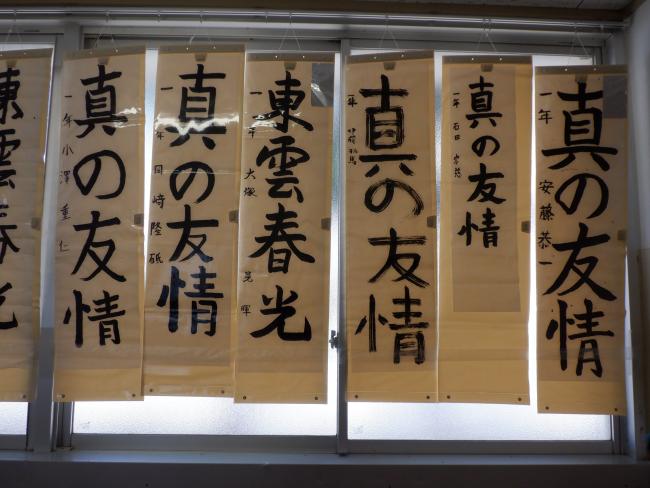 真の友情
一年 安藤恭一
真の友情
一年 石田
真の友情
一年
東雲春光
一年 大塚 晃暉
真の友情
一年 岡崎隆砥
真の友情
一年 小澤重仁
東雲春光